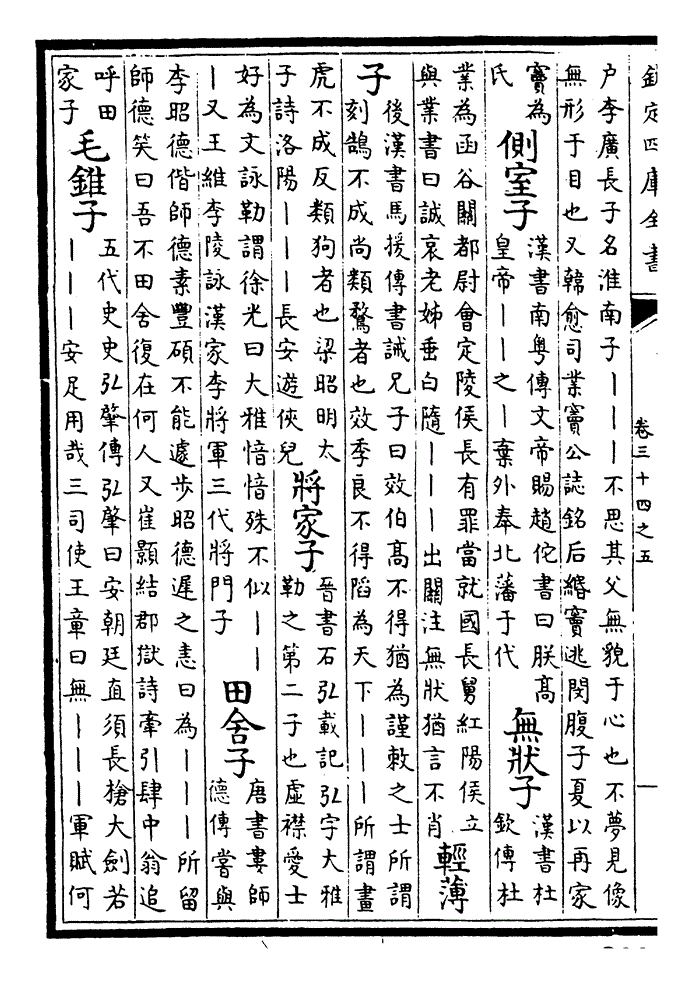 欽定四庫全書 卷三十四之五 一
户李廣長子名淮南子丨丨丨不思其父無貌于心也不夢見像
無形于目也又韓愈司業竇公誌銘后緡竇逃閔腹子夏以再家
竇為
氏
側室子
漢書南粤傳文帝賜趙佗書曰朕高
皇帝丨丨之丨棄外奉北藩于代
無狀子
漢書杜
欽傳杜
業為函谷關都尉會定陵侯長有罪當就國長舅紅陽侯立
與業書曰誠哀老姊垂白隨丨丨丨出關注無狀猶言不肖
輕薄
子
後漢書馬援傳書誡兄子曰效伯高不得猶為謹敕之士所謂
刻鵠不成尚類鶩者也效季良不得陷為天下丨丨丨所謂畫
虎不成反類狗者也梁昭明太
子詩洛陽丨丨丨長安遊俠兒
將家子
晉書石弘載記弘字大雅
勒之第二子也虛襟愛士
好為文詠勒謂徐光曰大雅愔愔殊不似丨丨
丨又王維李陵詠漢家李將軍三代將門子
田舍子
唐書婁師
德傳嘗與
李昭德偕師德素豐碩不能遽步昭德遲之恚曰為丨丨丨所留
師德笑曰吾不田舍復在何人又崔顥結郡獄詩牽引肆中翁追
呼田
家子
毛錐子
五代史史弘肇傳弘肇曰安朝廷直須長槍大劍若
丨丨丨安足用哉三司使王章曰無丨丨丨軍賦何